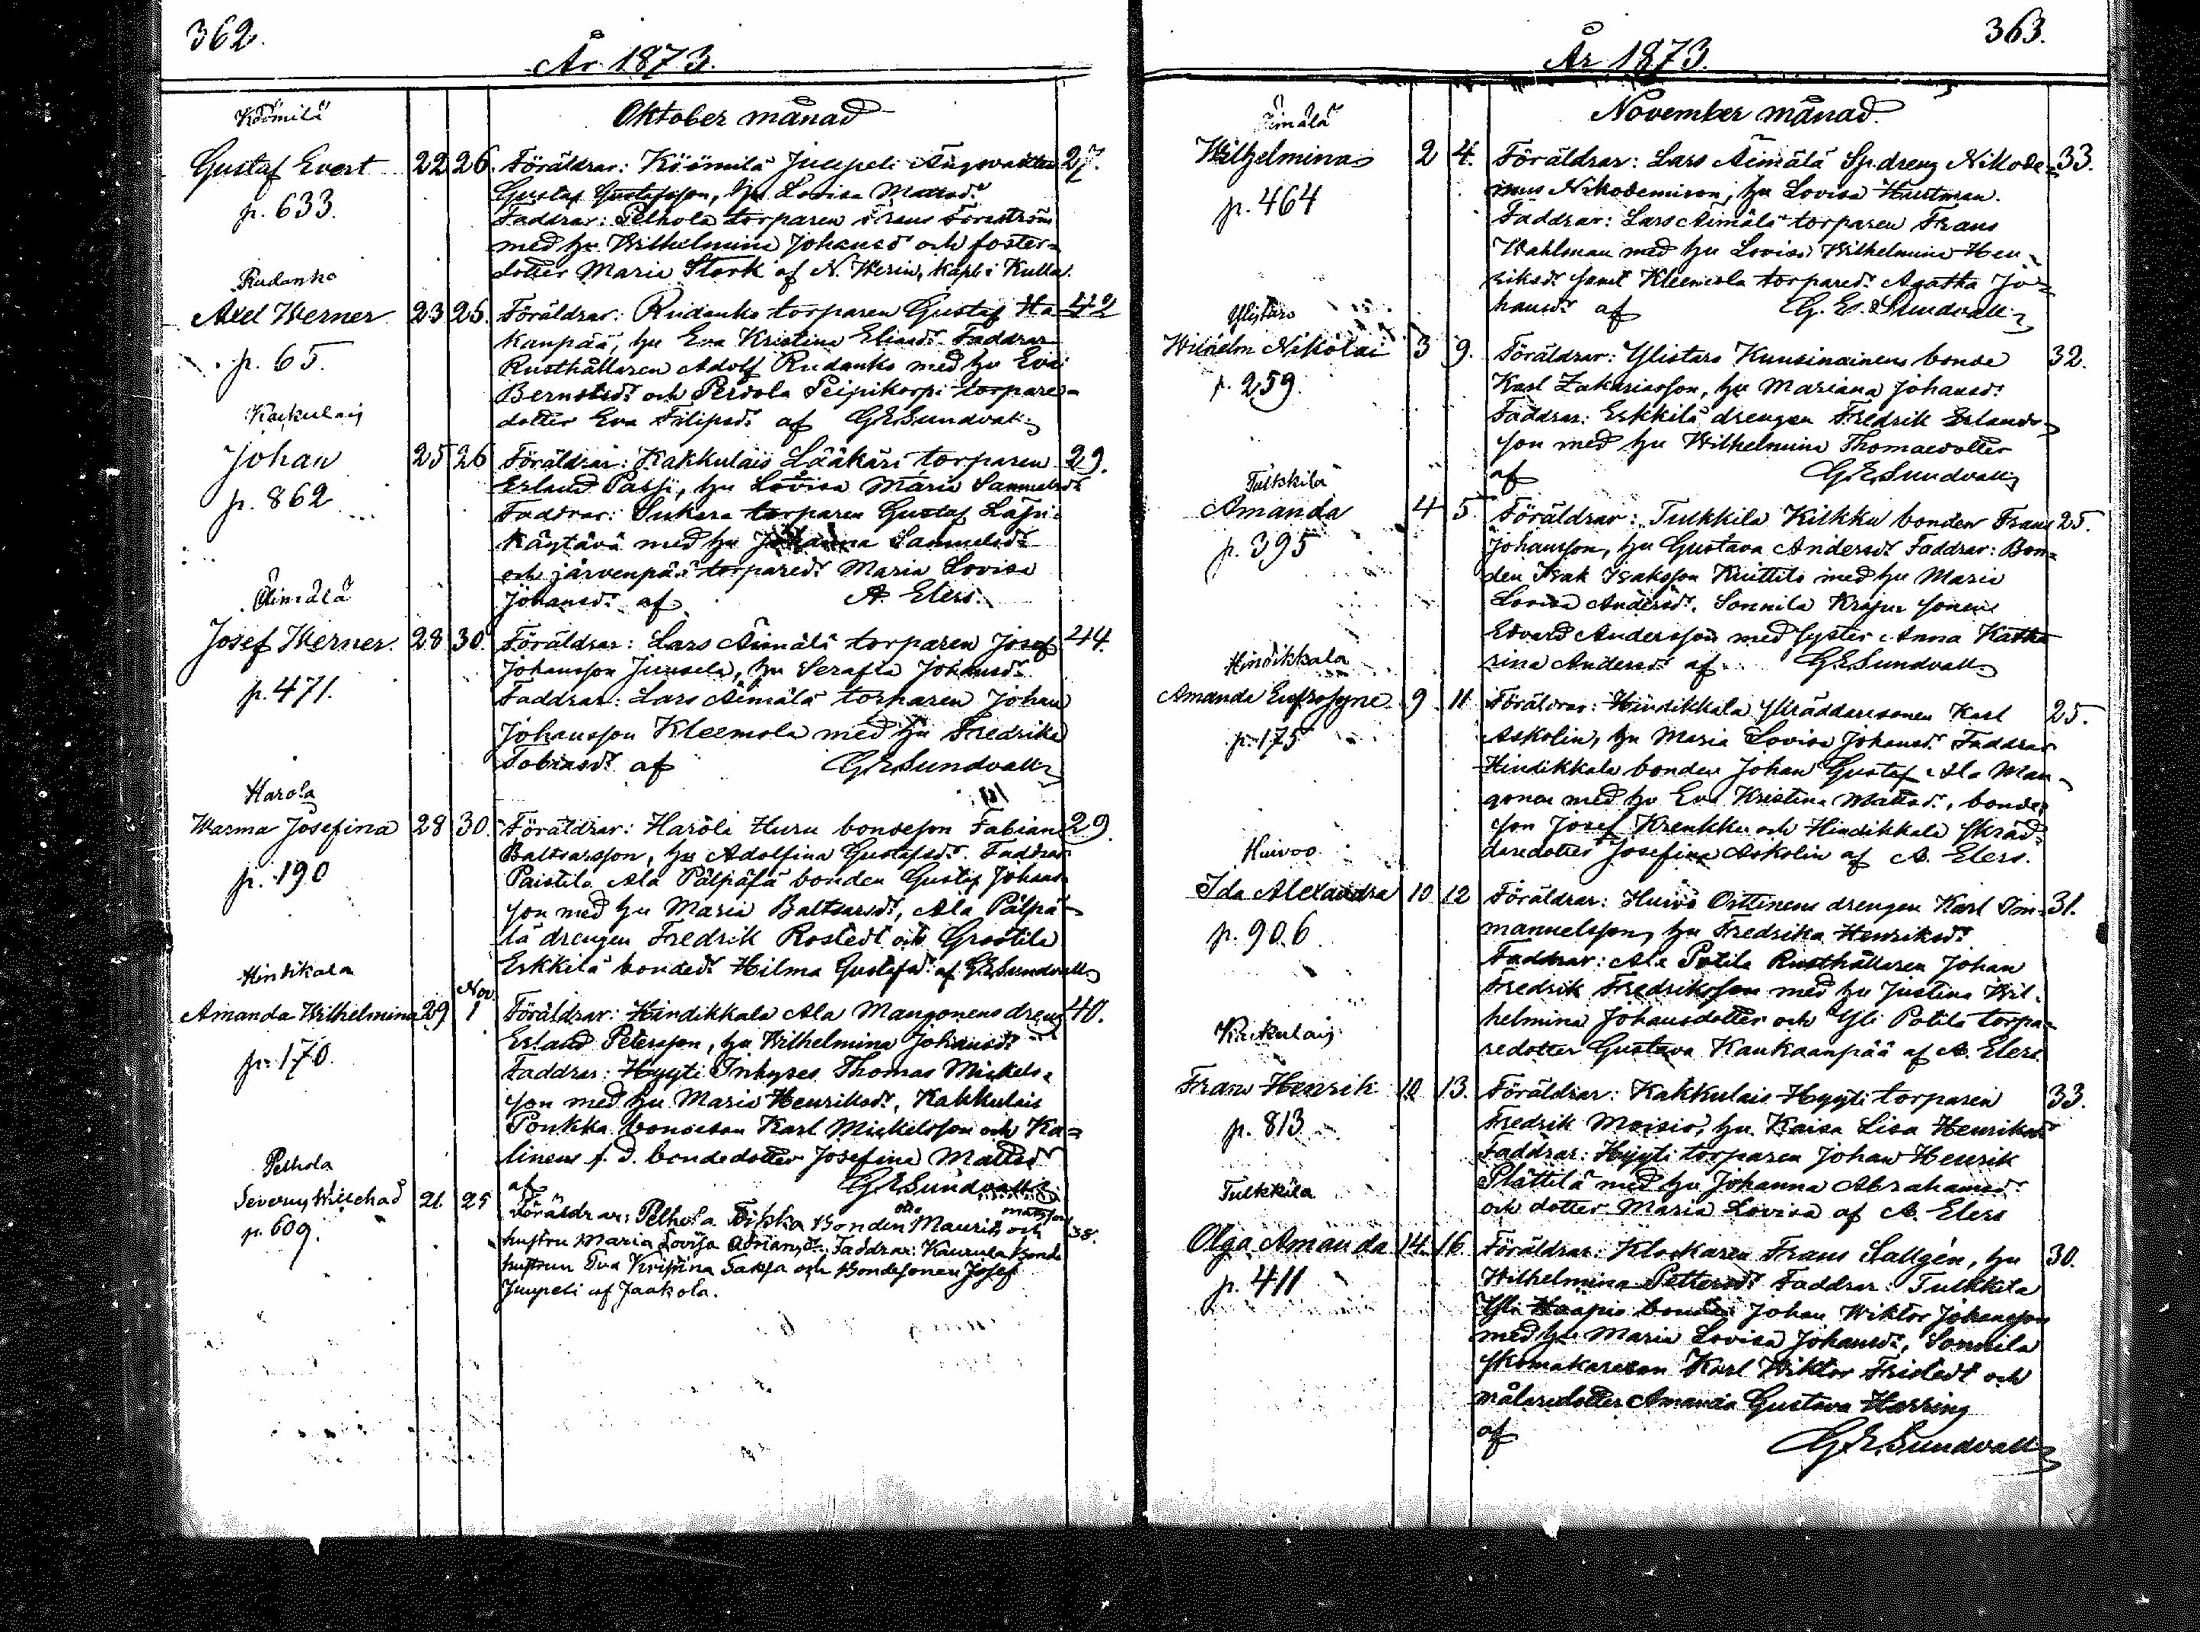 362.
År 1873.
Oktober månad
Köömilä
Gustaf Evert 22 26. Föräldrar: Köömilä Juupeli 27.
p. 633. Gustaf Gustafsson, hu Lovisa Mattsdr
Faddrar: Pelhola torparen Frans Forsström
med hu Wilhelmina Johansdr och foster-
dotter Maria Stark af N. Werin, kapl i Kulla.
Rudanko
Axel Werner 23 25. Föräldrar: Rudanko torparen Gustaf Ha- 42
p. 65. kanpää, hu Eva Kristina Eliasdr. Faddrar
Rusthållaren Adolf Rudanko med hu Eva
Berndtsdr och Perdola Peipikorpi torpare-
dotter Eva Filipsdr. af G E Sundvall
Kakkulais
Johan 25 26 Föräldrar: Kakkulais Lääkäri torparen 29.
p. 862 Erland Passi, hu Lovisa Maria Samuelsdr
Faddrar: Sukara torparen Gustaf Läpi-
käytävä med hu Johanna Samuelsdr
och järvenpää torpared. Maria Lovisa
Johansdr. af A. Elers.
Äimälä
Josef Werner. 28 30. Föräldrar: Lars Äimälä torparen Josef 44.
p. 471. Johansson Juusela, hu Serafia Johansdr.
Faddrar: Lars Äimälä torparen Johan
Johansson Kleemola med hu Fredrika
Tobiasdr. af G E Sundvall
Harola
Warma Josefina 28 30. Föräldrar: Harola Huru bondeson Fabian 29.
p. 190 Baltsarsson, hu Adolfina Gustafsdr. Faddrar
Paistila Ala Pälpälä bonden Gustaf Johans-
son med hu Maria Baltsarsdr, Ala Pälpä-
lä drengen Fredrik Rostedt och Grootila
Erkkilä bonded. Hilma Gustafsdr. af G E Sundvall
Hindikala
Nov.
Amanda Wilhelmina 29 1 Föräldrar: Hindikkala Ala Mangonens dreng 40.
p. 170. Erland Petersson, hu Wilhelmina Johansdr
Faddrar: Hyyti Inhyses Thomas Mickels-
son med hu Maria Henriksdr, Kakkulais
Ponkka bondeson Karl Mickelsson och Ka-
linens f. d. bondedotter Josefina Mattsdr
af G E Sundvall
Pelhola
21. 25 Föräldrar: Pelhola Bonden Maurits Mattsson och 38.
p. 609. hustru Maria Lovisa Adriansdr. Faddrar: Kaurula Bonde
hustrun Eva Kristina Saksa och Bondesonen Josef
Juupeli af Jaakola.
363.
År 1873.
November månad.
Äimälä
Wilhelmina 2 4. Föräldrar: Lars Äimälä Sp. dreng Nikode- 33.
p. 464 mus Nikodemison, hu Lovisa Hurtman.
Faddrar: Lars Äimälä torparen Frans
Wahlman med hu Lovisa Wilhelmina Hen-
riksdr. samt Kleemola torpared. Agatha Jo-
hansdr af G. E. Sundvall
Ylistaro
Wilhelm Nikolai 3 9. Föräldrar: Ylistaro Kuusinainens bonde 32.
p. 259. Karl Zakariasson, hu Mariana Johansd.
Faddrar: Erkkilä drengen Fredrik Erlands-
son med hu Wilhelmina Thomasdotter
af G E Sundvall
Tulkkila
Amanda 4 5. Föräldrar: Tulkkila Kilkku bonden Frans 25.
p. 395 Johansson, hu Gustava Andersdr. Faddrar: Bon-
den Isak Isaksson Knittilä med hu Maria
Lovisa Andersdr. Sonnila Krapu sonen
Edvard Andersson med syster Anna Katha-
rina Andersdr. af G E Sundvall
Hindikkala
Amanda Eufrosyne 9 11 Föräldrar: Hindikkala skräddaresonen Karl 25.
p. 175 Askolin, hu Maria Lovisa Johansd. Faddrar
Hindikkala bonden Johan Gustaf Ala Man-
gonen med hu Eva Kristina Mattsd., bonde-
son Josef Krenkku och Hindikkala skräd-
daredotter Josefina Askolin af A. Elers.
Huivoo
Ida Alexandra 10 12 Föräldrar: Huivo Orttinens drengen Karl Im- 31.
p. 906 manuelsson, hu Fredrika Henriksdr.
Faddrar: Ala Potila Rusthållaren Johan
Fredrik Fredriksson med hu Justina Wil-
helmina Johansdotter och Yli Potila torpa-
redotter Gustava Kankaanpää af A. Elers.
Kakkulais
Frans Henrik 10. 13. Föräldrar: Kakkulais Hyyti torparen 33.
p. 813 Fredrik Moisio, hu Kaisa Lisa Henriksdr
Faddrar: Hyyti torparen Johan Henrik
Plättilä med hu Johanna Abrahamsdr
och dotter Maria Lovisa af A. Elers
Tulkkila
Olga Amanda 14. 16. Föräldrar: Klockaren Frans Sallgén, hu 30.
p. 411 Wilhelmina Pettersdr. Faddrar: Tulkkila
Yli Haapio bonden Johan Wiktor Johansson
med hu Maria Lovisa Johansdr, Sonnila
skomakareson Karl Wiktor Fristedt och
målaredotter Amanda Gustava Herring
af G. E. Sundvall